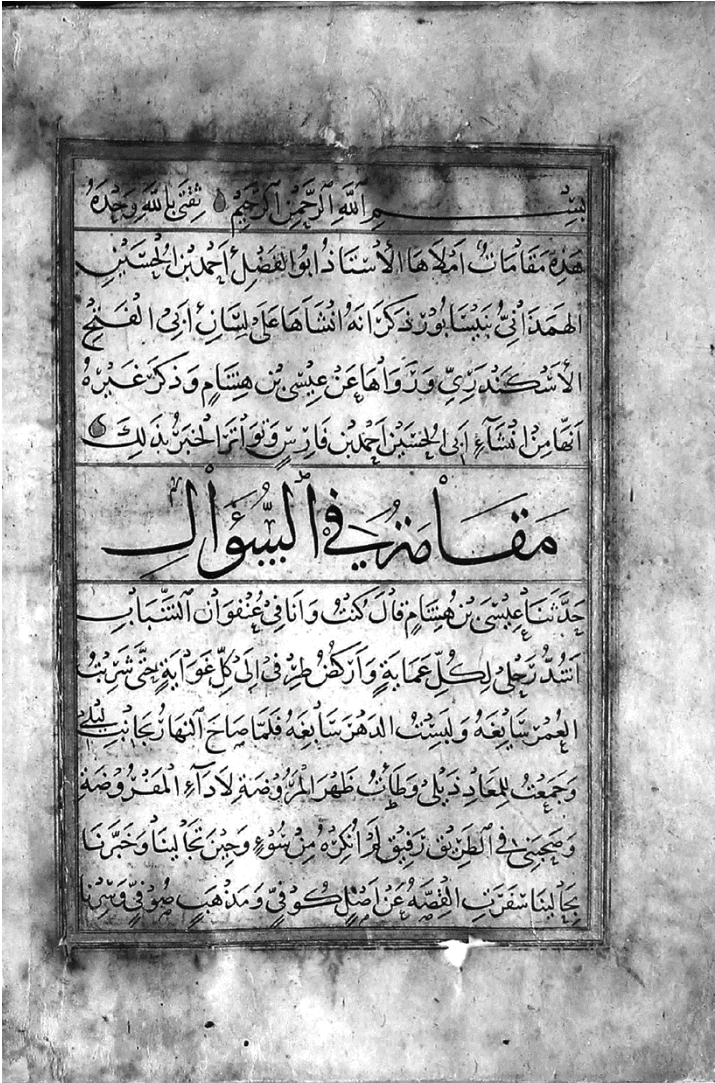 بِسْمِ ٱللَّهِ ٱلرَّحْمٰنِ ٱلرَّحِيمِ ثِقَتِي بِاللَّهِ وَحْدَهُ
هَذِهِ مَقَامَاتٌ اَمْلَاهَا الأُسْتَاذُ ابُو الفَضْلِ أَحْمَدُ بْنُ الْحُسَيْنِ
الهَمَذَانِيُّ بِنَيْسَابُورَ ذَكَرَ انَهُ انْشَاهَا عَلَى لِسَانِ أَبِى الْفَتْحِ
الأَسْكَنْدَرِيِّ وَرَوَاهَا عَنْ عِيْسَى بْنِ هِشَامٍ وَذَكَرَ غَيْرُهُ
اَنّهَا مِنْ انْشَآءِ ابَى الْحُسَيْنِ احْمَدَ بْنِ فَارِسٍ وَتَوَاتَرَ الْخَبَرُ بِذَلِكَ
مَقَامَةٌ فِي السُّؤَالِ
حَدَّثَنَا عِيْسَى بْنُ هِشَامٍ قَالَ كُنْتُ وَانَا فِي عُنْفُوَانِ الشَّبَابِ
اَشُدُّ رَحْلِى لِكُلِّ عَمَايَةٍ وَأَرْكُضُ طِرْفى اِلَى كُلِّ غَوَايَةٍ حَتَّى شَرِبْتُ
العُمْرَ سَايِغَهُ وَلَبِسْتُ الدَهْرَ سَابِغَهُ فَلَمَّا صَاحَ النَهَارُ بِجَانِبِ لَيْلِى
وَجَمَعْتُ لِلْمَعَادِ ذَيْلِى وَطَأْتُ ظَهْرَ الْمَرُوْضَةِ لِاَدَآءِ الْمَفْرُوْضَةِ
وَصَحِبَنِى فِي الطَرِيْقِ رَفِيْقٌ لَمْ اُنْكِرْهُ مِنْ سُوْءٍ وَحِيْنَ تَجَالَيْنَا وَخَبَّرَنَا
بِحَالَيْنَا سَفَرَتِ القِصَّهُ عَنْ اَصْلٍ كُوْفِيٍّ وَمَذْهَبٍ صُوْفِيٍّ وَسِرْنَا